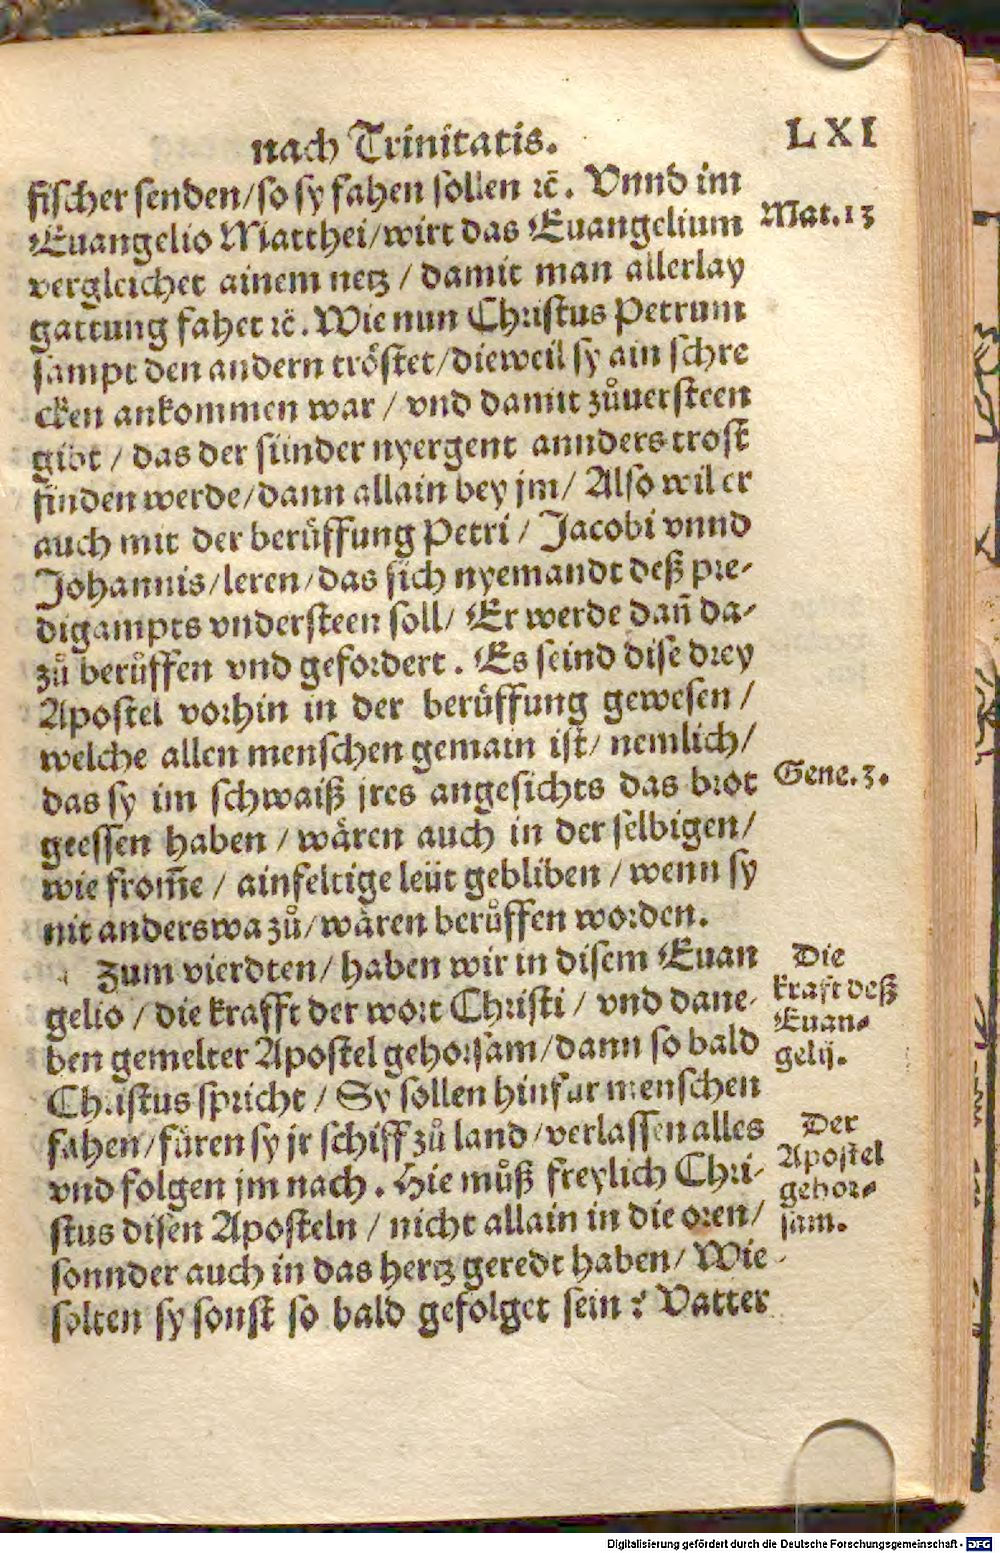 nach Trinitatis.
LXI
fischer senden/so sy fahen sollen ꝛc̃. Vnnd im
Euangelio Matthei/wirt das Euangelium
Mat.13
vergleichet ainem netz / damit man allerlay
gattung fahet ꝛc̃. Wie nun Christus Petrum
sampt den andern tröstet/dieweil sy ain schre
cken ankommen war / vnd damit zůuersteen
gibt / das der sünder nyergent annders trost
finden werde/dann allain bey jm/ Also wil er
auch mit der berüffung Petri / Jacobi vnnd
Johannis/leren/das sich nyemandt deß pre-
digampts vndersteen soll/ Er werde dañ da-
zů berüffen vnd gefordert. Es seind dise drey
Apostel vorhin in der berüffung gewesen /
welche allen menschen gemain ist/ nemlich/
das sy im schwaiß jres angesichts das brot
Gene.3.
geessen haben / wären auch in der selbigen/
wie from̃e / ainfeltige leüt gebliben / wenn sy
nit anderswa zů/wären berůffen worden.
Zum vierdten/ haben wir in disem Euan
gelio / die krafft der wort Christi / vnd dane-
ben gemelter Apostel gehorsam/dann so bald
Christus spricht / Sy sollen hinfur menschen
fahen/füren sy jr schiff zů land/verlassen alles
vnd folgen jm nach. Hie můß freylich Chri-
stus disen Aposteln / nicht allain in die oren/
sonnder auch in das hertz geredt haben/ Wie
solten sy sonst so bald gefolget sein? Vatter
Die
kraft deß
Euan-
gelij.
Der
Apostel
gehor-
sam.
Digitalisierung gefördert durch die Deutsche Forschungsgemeinschaft - DFG